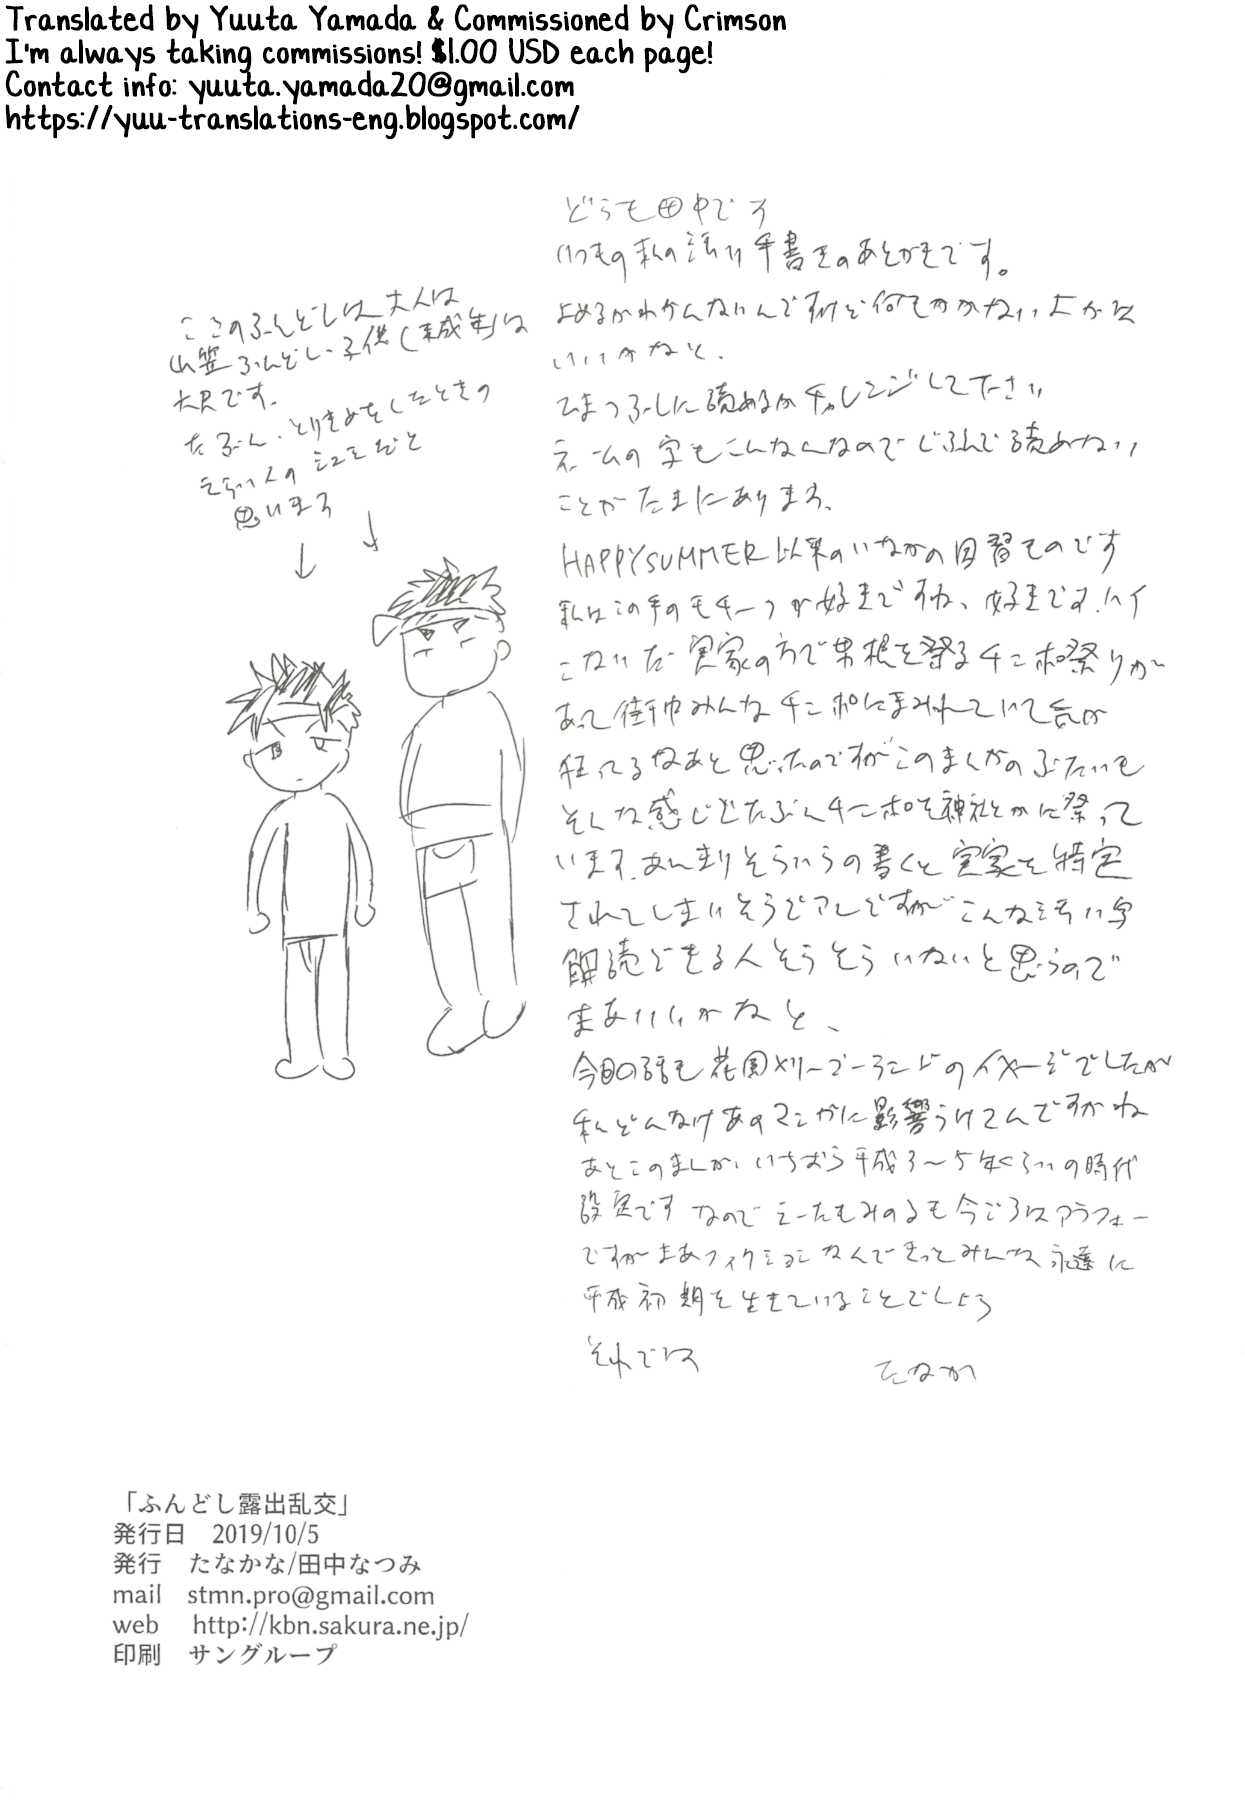 Translated by Yuuta Yamada & Commissioned by Crimson
I'm always taking commissions! $1.00 USD each page!
Contact info: yuuta.yamada20@gmail.com
https://yuu-translations-eng.blogspot.com/
どうも田中です
いつもの私の汚い手書きのあとがきです。
よめるかわかんないんですけど何てかかないよかは
いいかなと、
ひまつぶしに読めるかチャレンジして下さい
ネームの字もこんなんなのでじぶんで読めない
ことがたまにあります、
HAPPYSUMMER以来のいなかの因習ものです
私はこの手のモチーフが好きですね、好きです、ハイ
こないだ実家の方で男根を祭るチンポ祭りが
あって街中みんなチンポにまみれていて気が
狂ってるなあと思ったのですがこのまんがのぶたいも
そんな感じでたぶんチンポを神社とかに祭って
います、あんまりそういうの書くと実家を特定
されてしまいそうでアレですが こんな汚い字
解読できる人そうそういないと思うので
まあいいかなと、
今回の話も花園メリーゴーランドのイメージでしたが
私どんなけあのマンガに影響うけてんですかね
あとこのまんが、いちおう平成3〜5年くらいの時代
設定です なので も今ごろはアラフォー
ですがまあフィクションなんできっとみんな永遠に
平成初期を生きていることでしょう
それでは
たなか
ここのふんどしは大人は
山笠ふんどし、子供(未成年)は
六尺です、
たぶん、とりきめをしたときの
えらい人のシュミだと
思います
「ふんどし露出乱交」
発行日 2019/10/5
発行 たなかな/田中なつみ
mail stmn.pro@gmail.com
web http://kbn.sakura.ne.jp/
印刷 サングループ